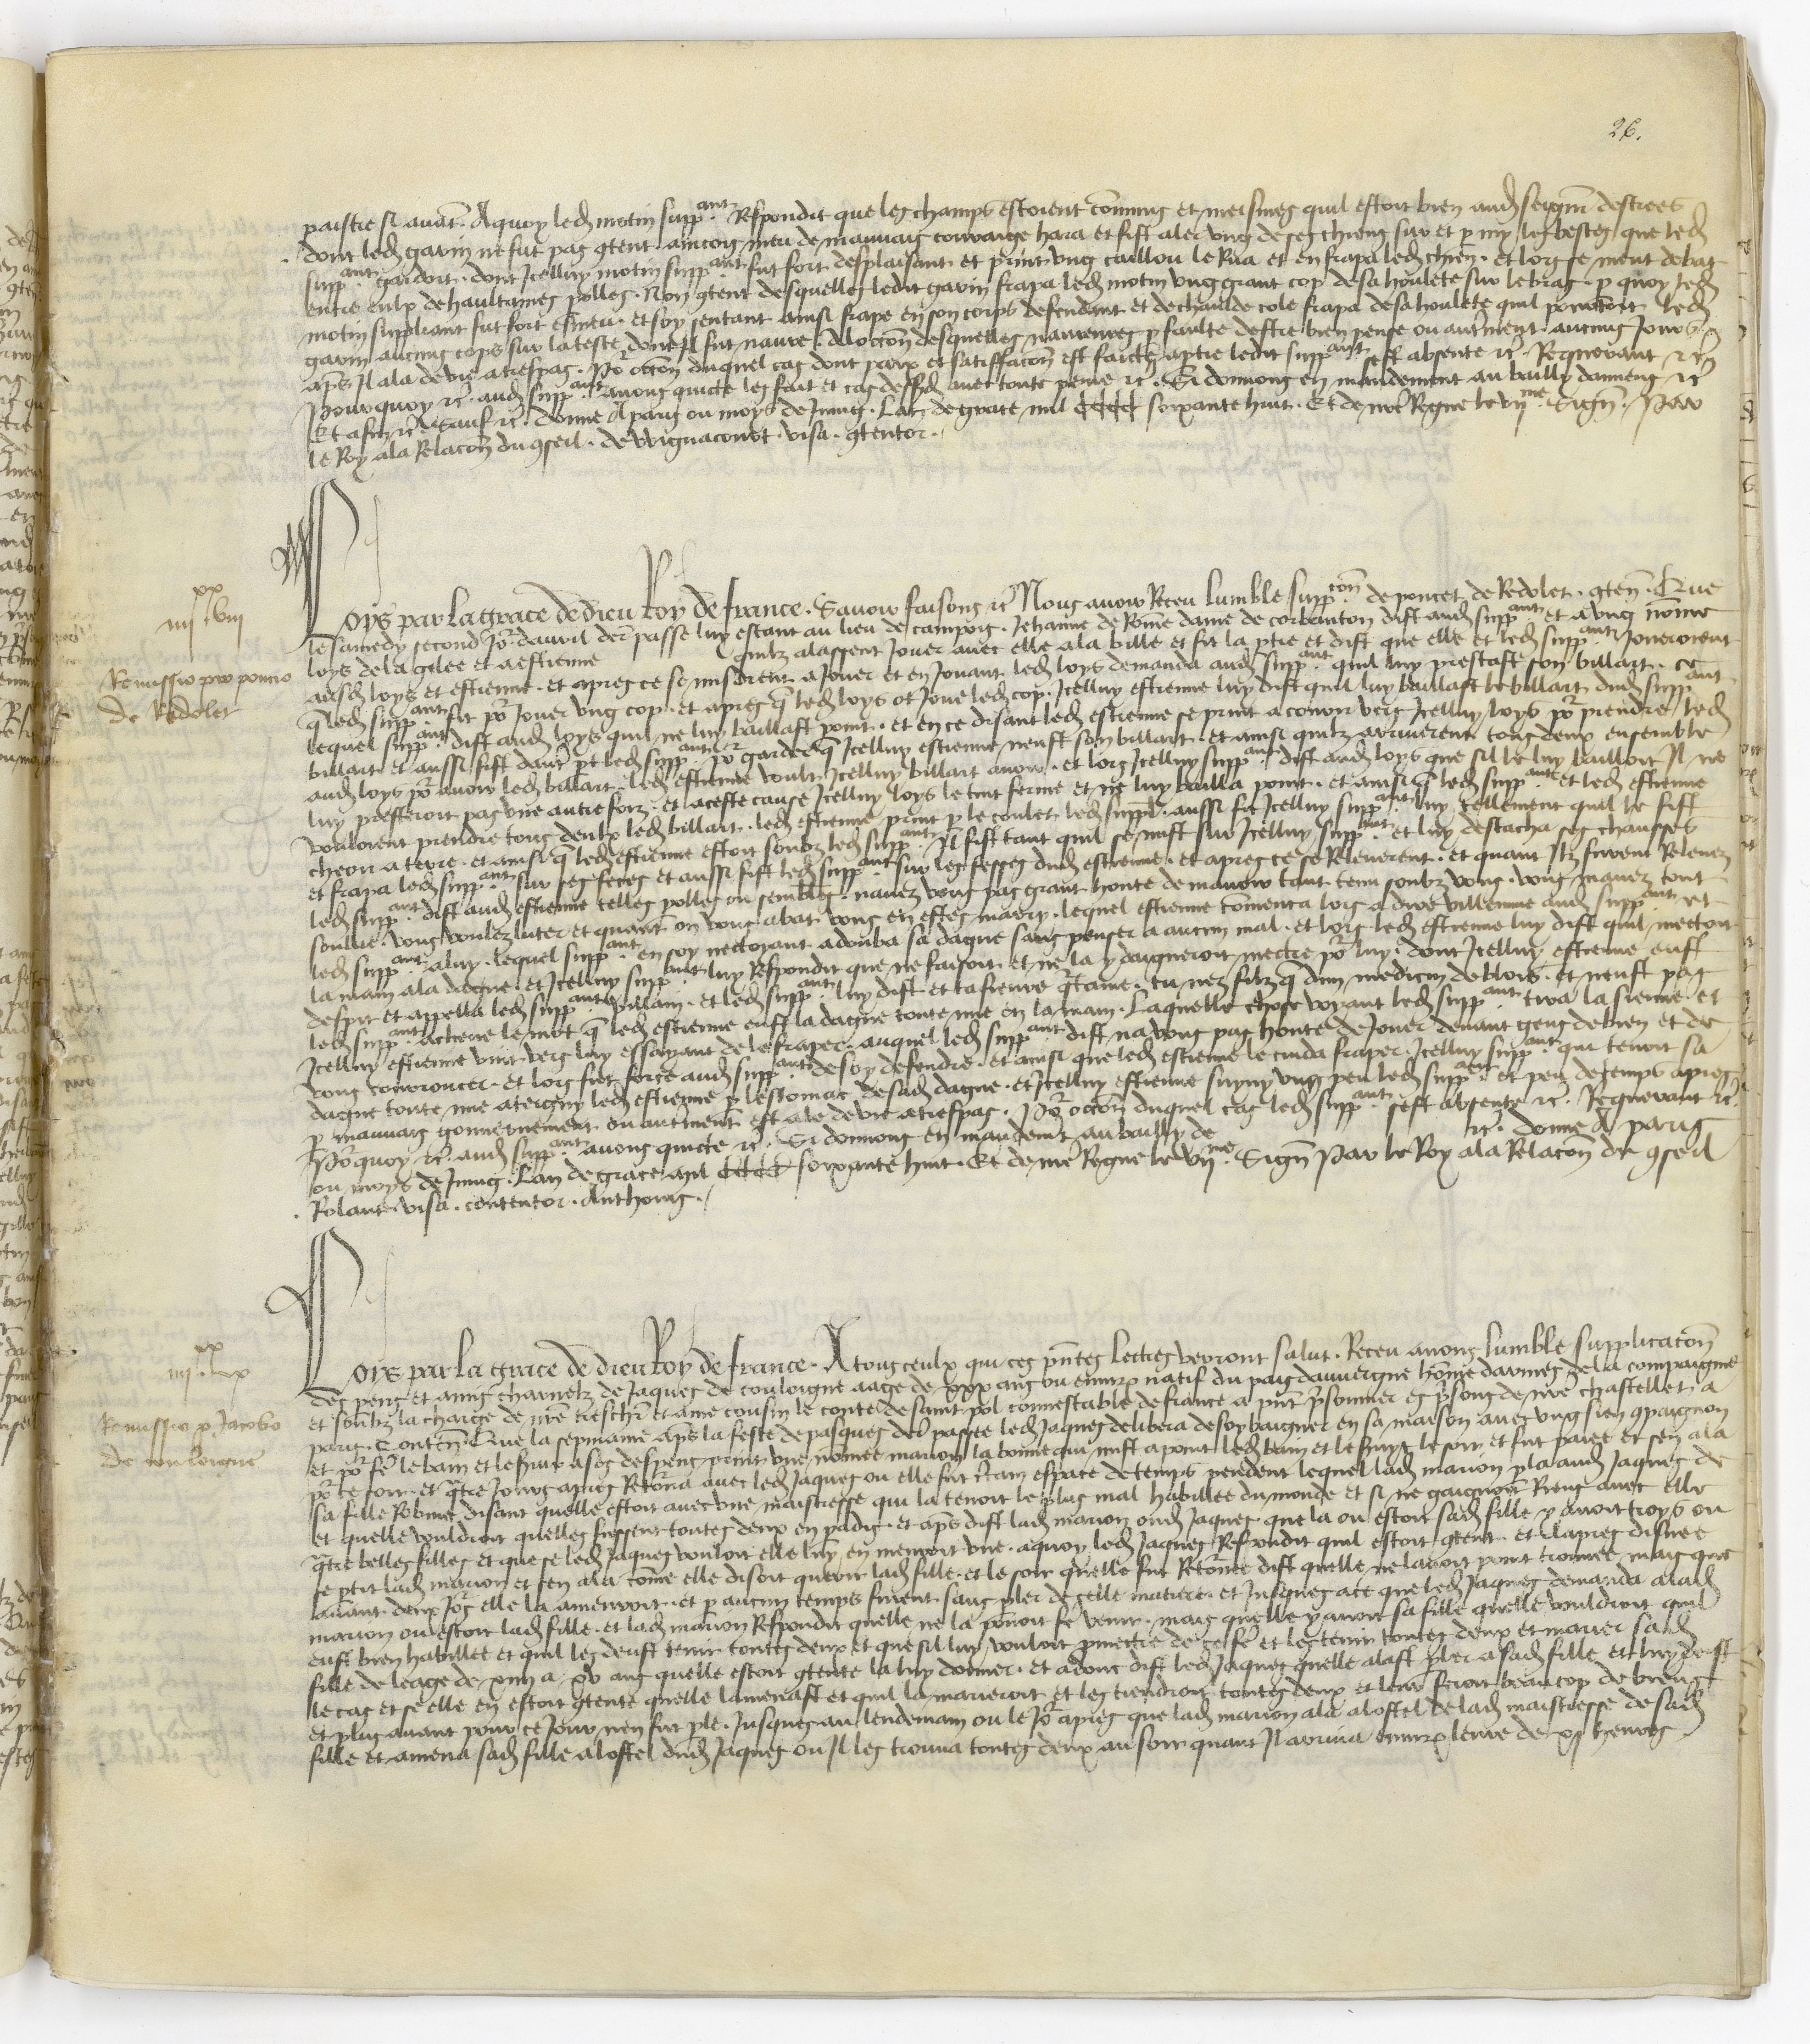 26.
paistre si avāt. A quoy led motin supp.ant Respondit que les champs estoient cōmung et mesmes quil estoit bien aud seigneur destrees
dont led gavin ne fut pas 9tent aincois meu de mauvais couraige hara et fist aler ung de ses chiens sur et p my les bestes que led
supp.ant gardoit. dont Icelluy motin supp.ant fut fort desplaisant et print ung caillou le Rua et en frapa led chien. et lors se meut debat
entre eulx de haultaines polles. Non 9tent desquelles ledit gavin frapa led motin ung grant cop de sa houlete sur le bras. p quoy led
motin suppliant fut fort esmeu. et soy sentant ainsi frape en son corps defendant et de chaulde cole frapa de sa houlete quil portoit led
gavin aucuns cops sur la teste dont Il fut navre. A loccōn desquelles navreures p faulte destre bien pense ou autment. aucuns Jours
aps Il ala de vie a trespas. Po.r occōn duquel cas dont paix et satisffacōn est faicte a ptie ledit supp.ant sest absente &c. Requerant &c
Pourquoy &c. aud supp.ant avons quicte les fait et cas dessusd avec toute peine &c. Si donnons en mandement au bailly damiens &c
Et afin &c Sauf &c. donne A paris ou moys de Juing. Lan de grace mil CCCC soixante huit. Et de nre Regne le vij.me Sign. Par
le Roy a la Relacōn du 9seil. de Vvignacourt. visa. 9tentor.
xx
iiij xviij
Remissio pro poncio
de Redolet
Loys par la grace de dieu Roy de france. Savoir faisons &c Nous avoir Receu lumble supp.cōn de poncet de Redolet. 9ten. Que
le samedy second Jo.r davril der passe luy estant au lieu de campois. Jehanne de Rome dame de corbanton dist aud supp.ant et a ung nōme
loys de la gilee et a estienne quilz alassent Jouer avec elle a la bille et fit la ptie et dist que elle et led supp.ant Joueroient
ausd loys et estienne. et apres ce se misdrent a Jouer et en Jouant led loys demanda aud supp.ant quil luy prestast son billart. ce
q led supp.ant fit po.r Jouer ung cop. et apres q led loys ot Joue led cop. Icelluy estienne luy dist quil luy baillast le billart dud supp.ant
lequel supp.ant dist aud loys quil ne luy baillast point. et en ce disant led estienne se print a courir vers Icelluy loys po.r prendre led
billart et aussi fist dautre pt led supp.ant po.r garder q Icelluy estienne neust son billart. et ainsi quilz arriverent tous deux ensemble
aud loys po.r avoir led billart. led estienne voult Icelluy billart avoir. et lors Icelluy supp.ant dist aud loys que sil le luy bailloit Il ne
luy presteroit pas une autre foiz. et a ceste cause Icelluy loys le tint ferme et ne luy bailla point. et ainsi q led supp.ant et led estienne
vouloient prendre tous deulx led billart. led estienne print p le coulet led supp.ant aussi fit Icelluy supp.ant luy tellement quil le fist
cheoir a terre. et ainsi q led estienne estoit soubz led supp.ant Il fist tant quil se mist sur Icelluy supp.ant et luy destacha ses chausses
et frapa led supp.ant sur ses feces et aussi fist led supp.ant sur les fesses dud estienne. et apres ce se Releverent. et quant Ilz furent Relevez
led supp.ant dist aud estienne telles polles ou semblés. navez vous pas grant honte de mavoir tant tenu soubz vous. vous mavez tout
soullie. vous voulez luter et quant on vous abat vous en estes marry. lequel estienne cōmenca lors a dire villennie aud supp.ant et
led supp.ant a luy. lequel supp.ant en soy nectoyant adouba sa dague sans penser a aucun mal. et lors led estienne luy dist quil mectoit
la main a la dague. et Icelluy supp.ant luy Respondit que ne faisoit et ne la y daigneroit mectre po.r luy. dont Icelluy estienne eust
despit et appella led supp.ant villain. et led supp.ant luy dist. et ta fievre q.rtaine. tu nez filz q dun medicin de blois. et neust pas
led supp.ant acheve le mot q led estienne eust la dague toute nue en la main. Laquelle chose voyant led supp.ant tira la sienne. et
Icelluy estienne vint vers luy essayant de le fraper. auquel led supp.ant dist navous pas honte de Jouer devant gens de bien et de
vous courroucer. et lors fut force aud supp.ant de soy defendre. et ainsi que led estienne le cuida fraper. Icelluy supp.ant qui tenoit sa
dague toute nue ateigny led estienne p lestomac de sad dague. et Icelluy estienne suyvy ung peu led supp.ant et peu de temps apres
p mauvais gouvernement ou autment est ale de vie a trespas. Po.r occōn duquel cas led supp.ant sest absente &c. Requerant &c.
Po.rquoy &c. aud supp.ant avons quicte &c. Si donnons en mandemt au bailly de &c. donne A paris
ou moys de Juing. Lan de grace mil CCCC soixante huit. Et de nre Regne le vij.me Sign Par le Roy a la Relacōn du 9seil
Rolant. visa. contentor. Anthonis.
xx
iiij xix
Remissio p Jacobo
de couloigne
Loys par la grace de dieu Roy de france. A tous ceulx qui ces pntes lectres verront salut. Receu avons lumble supplicacōn
des pens et amis charnelz de Jaques de couloigne aage de xxx ans ou environ natif du pais dauvergne hōme darmes de la compaignie
et soubz la charge de nre treschr et ame cousin le conte de saint pol connestable de france a pnt prisonnier es prisons de nre chastellet a
paris. Conten Que la sepmaine aps la feste de pasques der passee led Jaques delibera de soy baigner en sa maison avec ung sien 9paignon
et po.r fe le bain et le servir a ses despens print une nōmee marion la bonne qui mist a point led bain et le servy le soir et fut paiee et sen ala
po.r ce soir. et q.rtre Jours apres Reto.rna avec led Jaques ou elle fut ctain espace de temps pendent lequel lad marion pla aud Jaques de
sa fille Robine disant quelle estoit avec une maistresse qui la tenoit le plus mal habillee du monde et si ne gaignoit Riens avec elle
et quelle vouldroit quelles fussent toutes deux en padis. et aps dist lad marion aud Jaques que la ou estoit sad fille y avoit troys ou
q.rtre belles filles et que se led Jaques vouloit elle luy en menroit une. a quoy led Jaques Respondit quil estoit 9tent. et lapres disnee
se ptit lad marion et sen ala cōme elle disoit querir lad fille. et le soir quelle fut Reto.rnee dist quelle ne lavoit point trouvee mais que
avant deux Jo.rs elle la amenroit. et p aucun temps furent sans pler de celle matiere. et Jusques a ce que led Jaques demanda a lad
marion ou estoit lad fille. et lad marion Respondit quelle ne la povoit fe venir. mais quelle y avoit sa fille quelle vouldroit quil
eust bien habillee et quil les deust tenir toutes deux et que sil luy vouloit pmectre de ce fe et les tenir toutes deux et marier sad
fille de leage de xiiij a xv ans quelle estoit 9tente la luy donner. et adonc dist led Jaques quelle alast pler a sad fille et luy dist
le cas et se elle en estoit 9tente quelle lamenast et quil la marieroit et les tiendroit toutes deux et leur feroit beaucop de biens
et plus avant pour ce Jour nen fut ple. Jusques au lendemain ou le Jo.r apres que lad marion ala a lostel de lad maistresse de sad
fille et amena sad fille a lostel dud Jaques ou Il les trouva toutes deux au soir quant Il arriva environ leure de xj heures